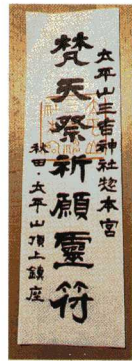 太平山三吉神社惣本宮
梵天祭祈願靈符
秋田・太平山頂上鎮座